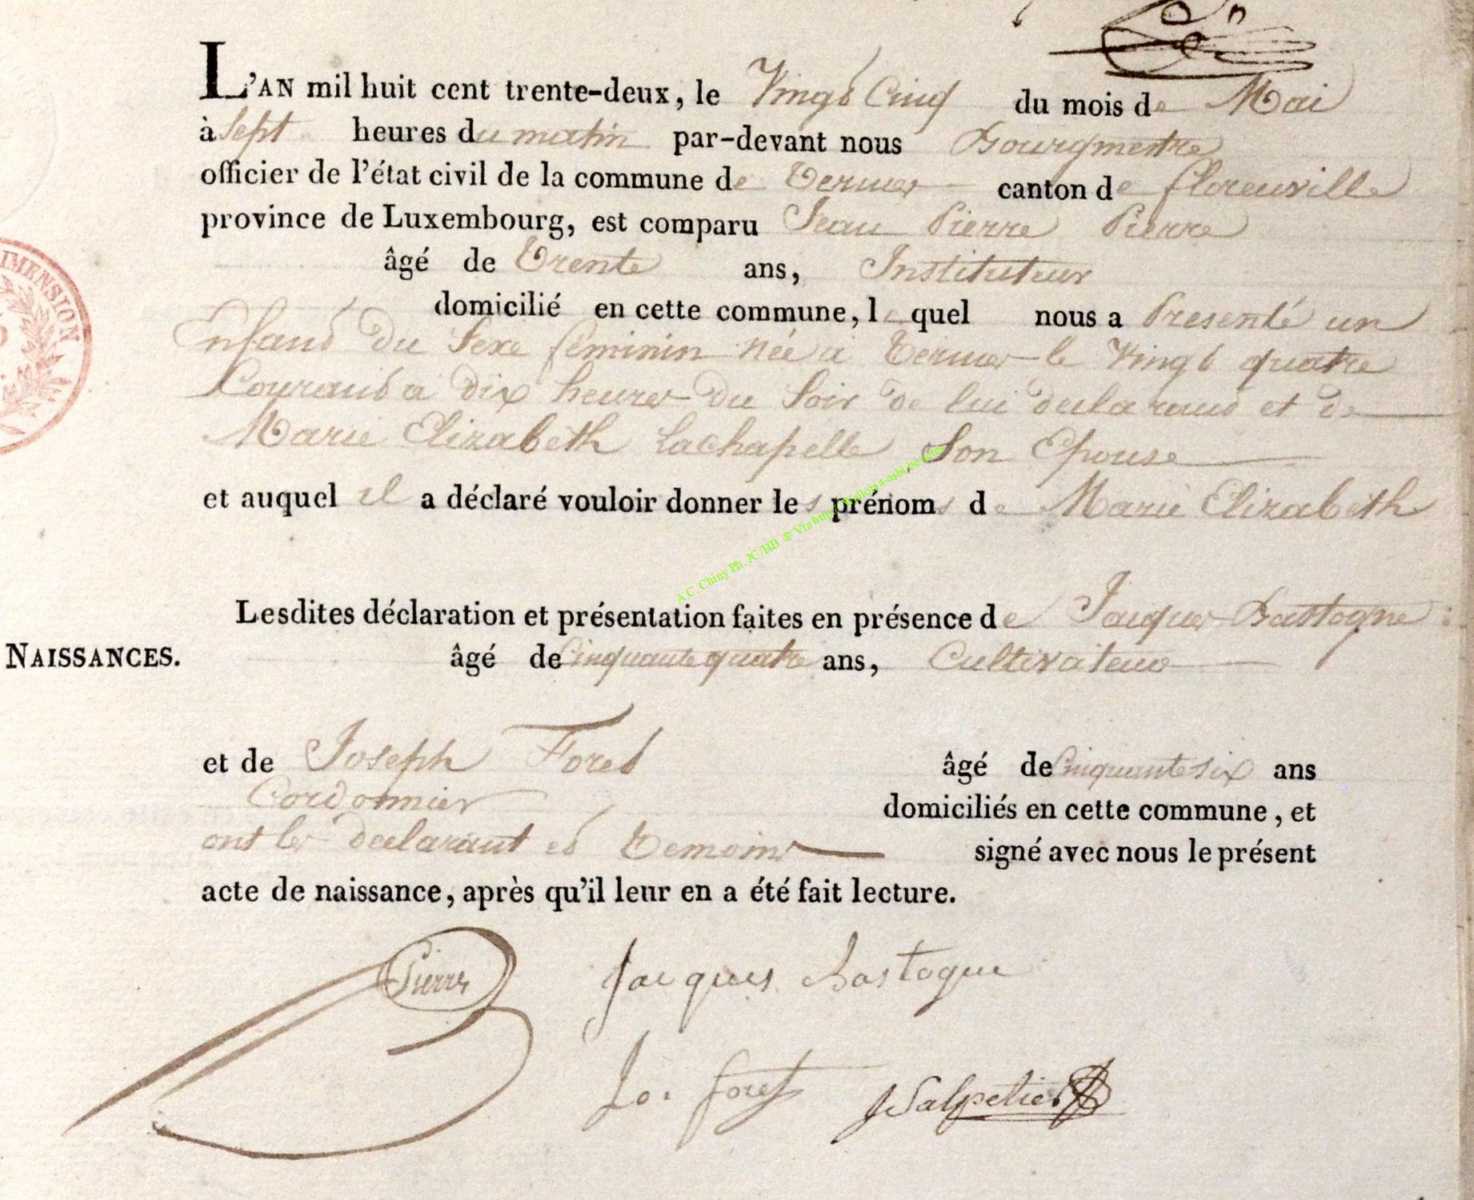 L'AN mil huit cent trente-deux, le Vingt Cinq du mois de Mai
à Sept heures du matin par-devant nous Bourgmestre
officier de l'état civil de la commune de Termes canton de florenville
province de Luxembourg, est comparu Jean Pierre Pierre
âgé de Trente ans, Instituteur
domicilié en cette commune, lequel nous a Presenté un
Enfant du Sexe feminin née a Termes le Vingt quatre
Courant a dix heures du Soir de lui declarant et de
Marie Elizabeth Lachapelle Son Epouse
et auquel il a déclaré vouloir donner les prénoms de Marie Elizabeth
Lesdites déclaration et présentation faites en présence de Jacques Bastogne
NAISSANCES.
âgé de Cinquante quatre ans, Cultivateur
et de Joseph Foret âgé de Cinquante six ans
Cordonnier domiciliés en cette commune, et
ont les declarant et Temoins signé avec nous le présent
acte de naissance, après qu'il leur en a été fait lecture.
Pierre Jacques bastogne
Jo. foret JSalpetier
IMENSION